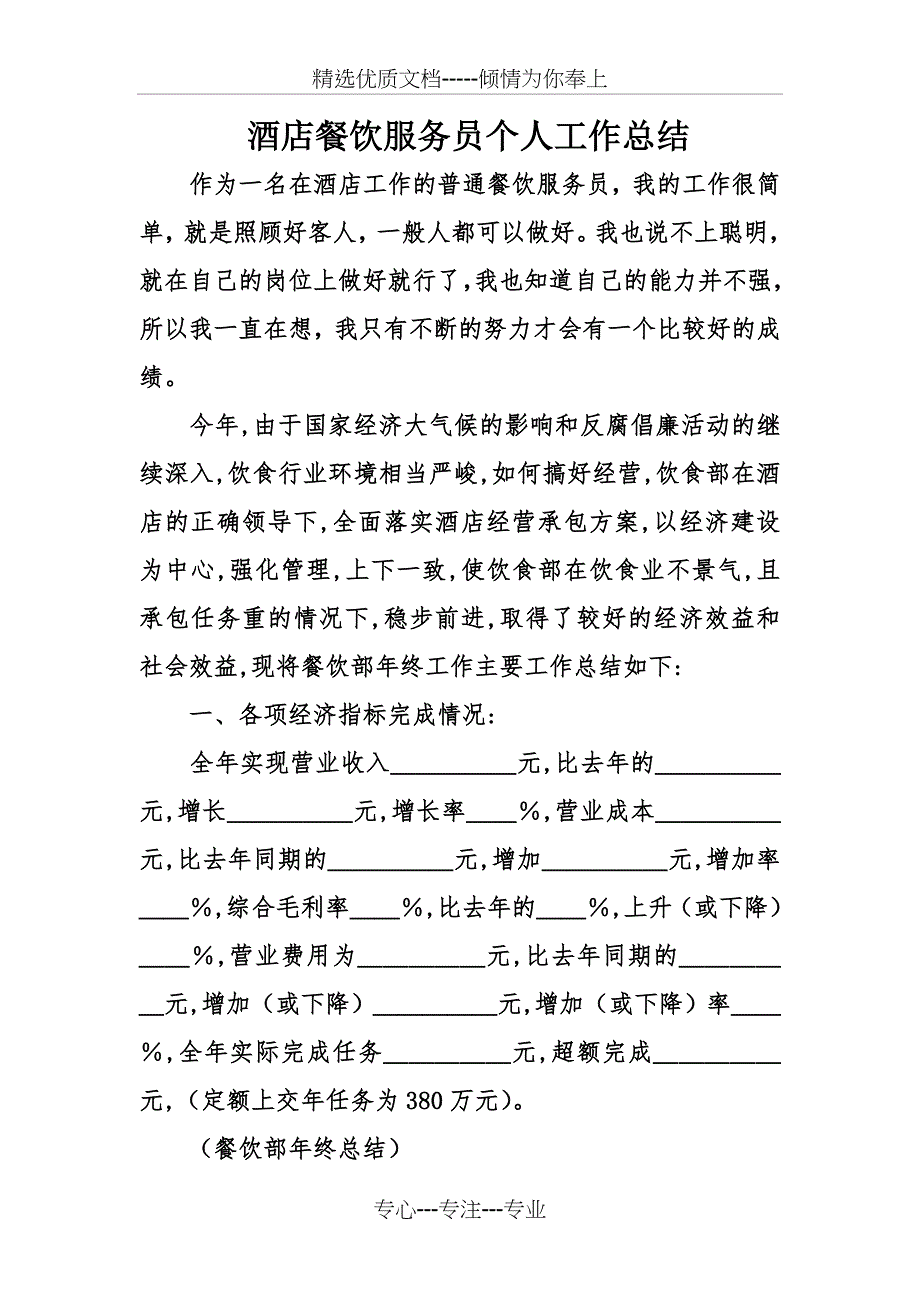 精选优质文档-----倾情为你奉上
酒店餐饮服务员个人工作总结
作为一名在酒店工作的普通餐饮服务员，我的工作很简
单，就是照顾好客人，一般人都可以做好。我也说不上聪明，
就在自己的岗位上做好就行了，我也知道自己的能力并不强，
所以我一直在想，我只有不断的努力才会有一个比较好的成
绩。
今年,由于国家经济大气候的影响和反腐倡廉活动的继
续深入,饮食行业环境相当严峻,如何搞好经营,饮食部在酒
店的正确领导下,全面落实酒店经营承包方案,以经济建设
为中心,强化管理,上下一致,使饮食部在饮食业不景气,且
承包任务重的情况下,稳步前进,取得了较好的经济效益和
社会效益,现将餐饮部年终工作主要工作总结如下:
一、各项经济指标完成情况:
全年实现营业收入__________元,比去年的__________
元,增长__________元,增长率____%,营业成本__________
元,比去年同期的__________元,增加__________元,增加率
____%,综合毛利率____%,比去年的____%,上升（或下降）
____%,营业费用为__________元,比去年同期的________
__元,增加（或下降）__________元,增加（或下降）率____
%,全年实际完成任务__________元,超额完成__________
元,（定额上交年任务为380万元）。
（餐饮部年终总结）
专心---专注---专业